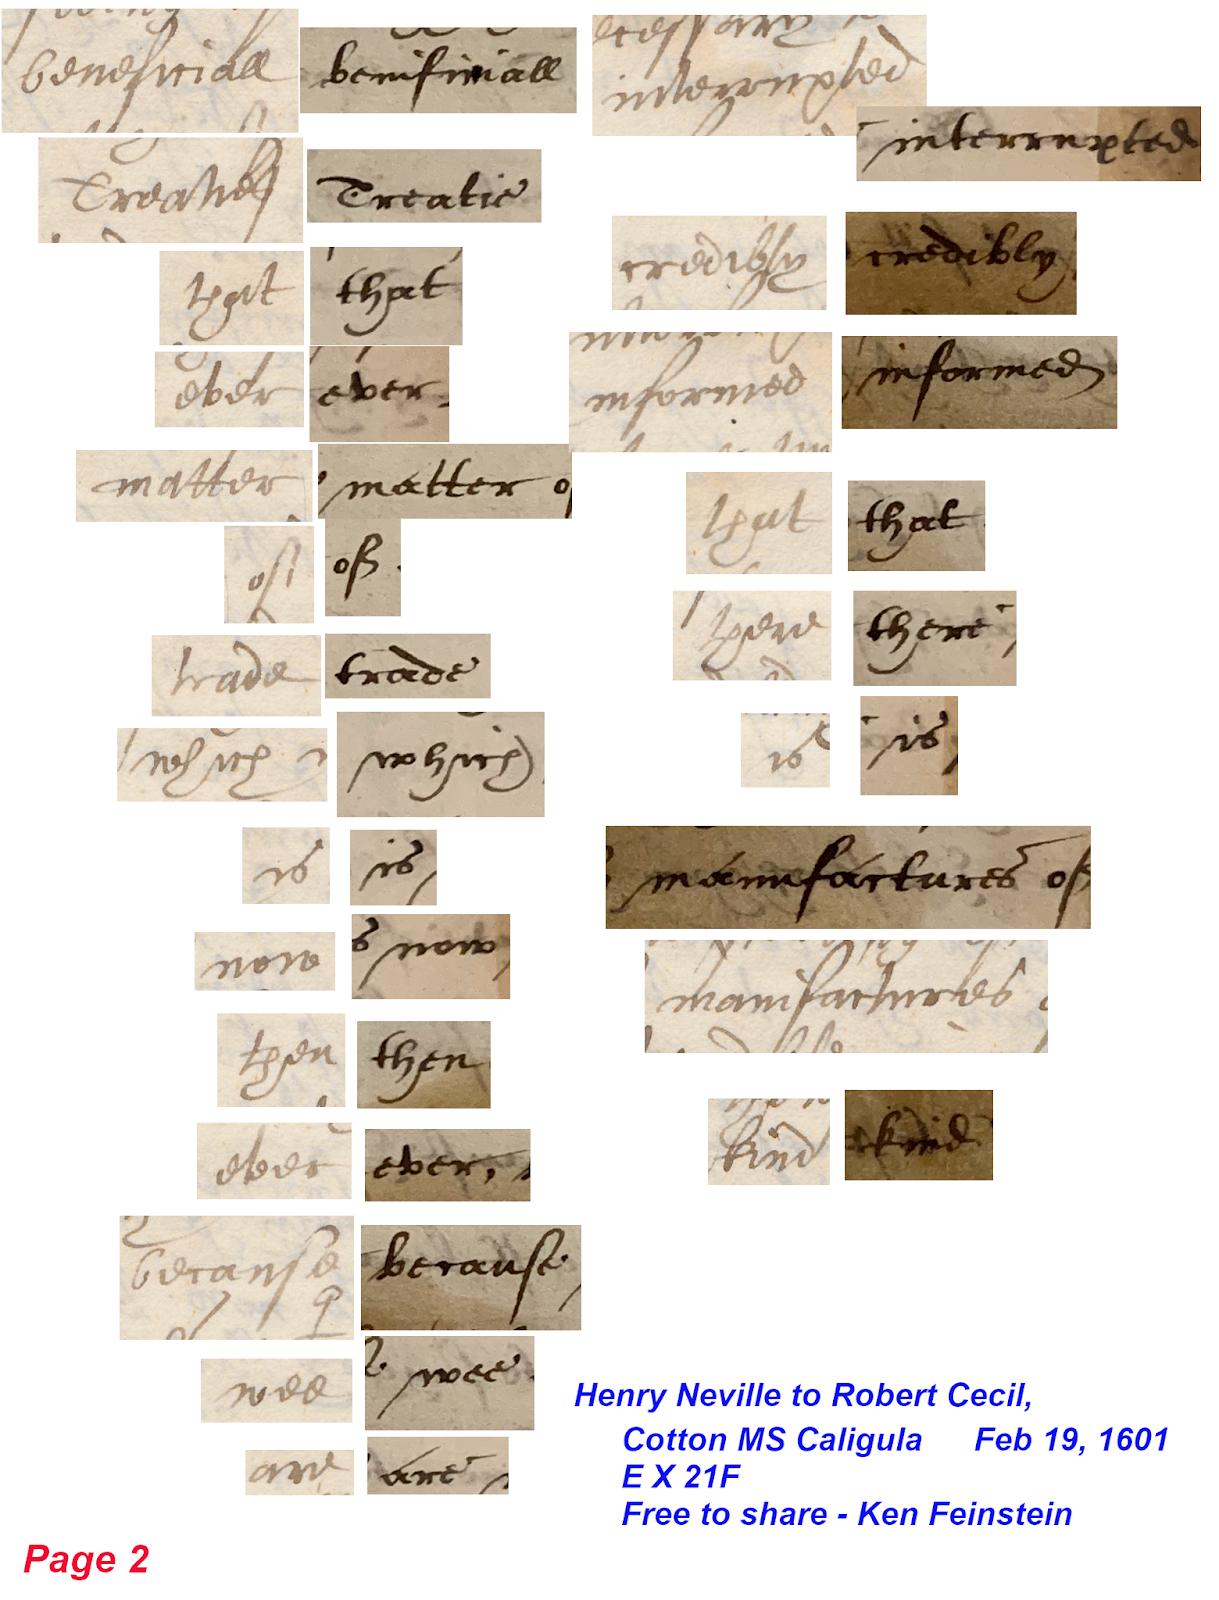 beneficiall benificiall
Treaties Treatie
that that
ever ever
matter matter o
of of
trade trade
which which
is is
now now
then then
ever ever,
because because
wee wee
are are
ecessary
interrupted
interrupted
credibly credibly
informed informed
that that
there there
is is
manufactures of
manifactures
kind kind
Henry Neville to Robert Cecil,
Cotton MS Caligula Feb 19, 1601
E X 21F
Free to share - Ken Feinstein
Page 2